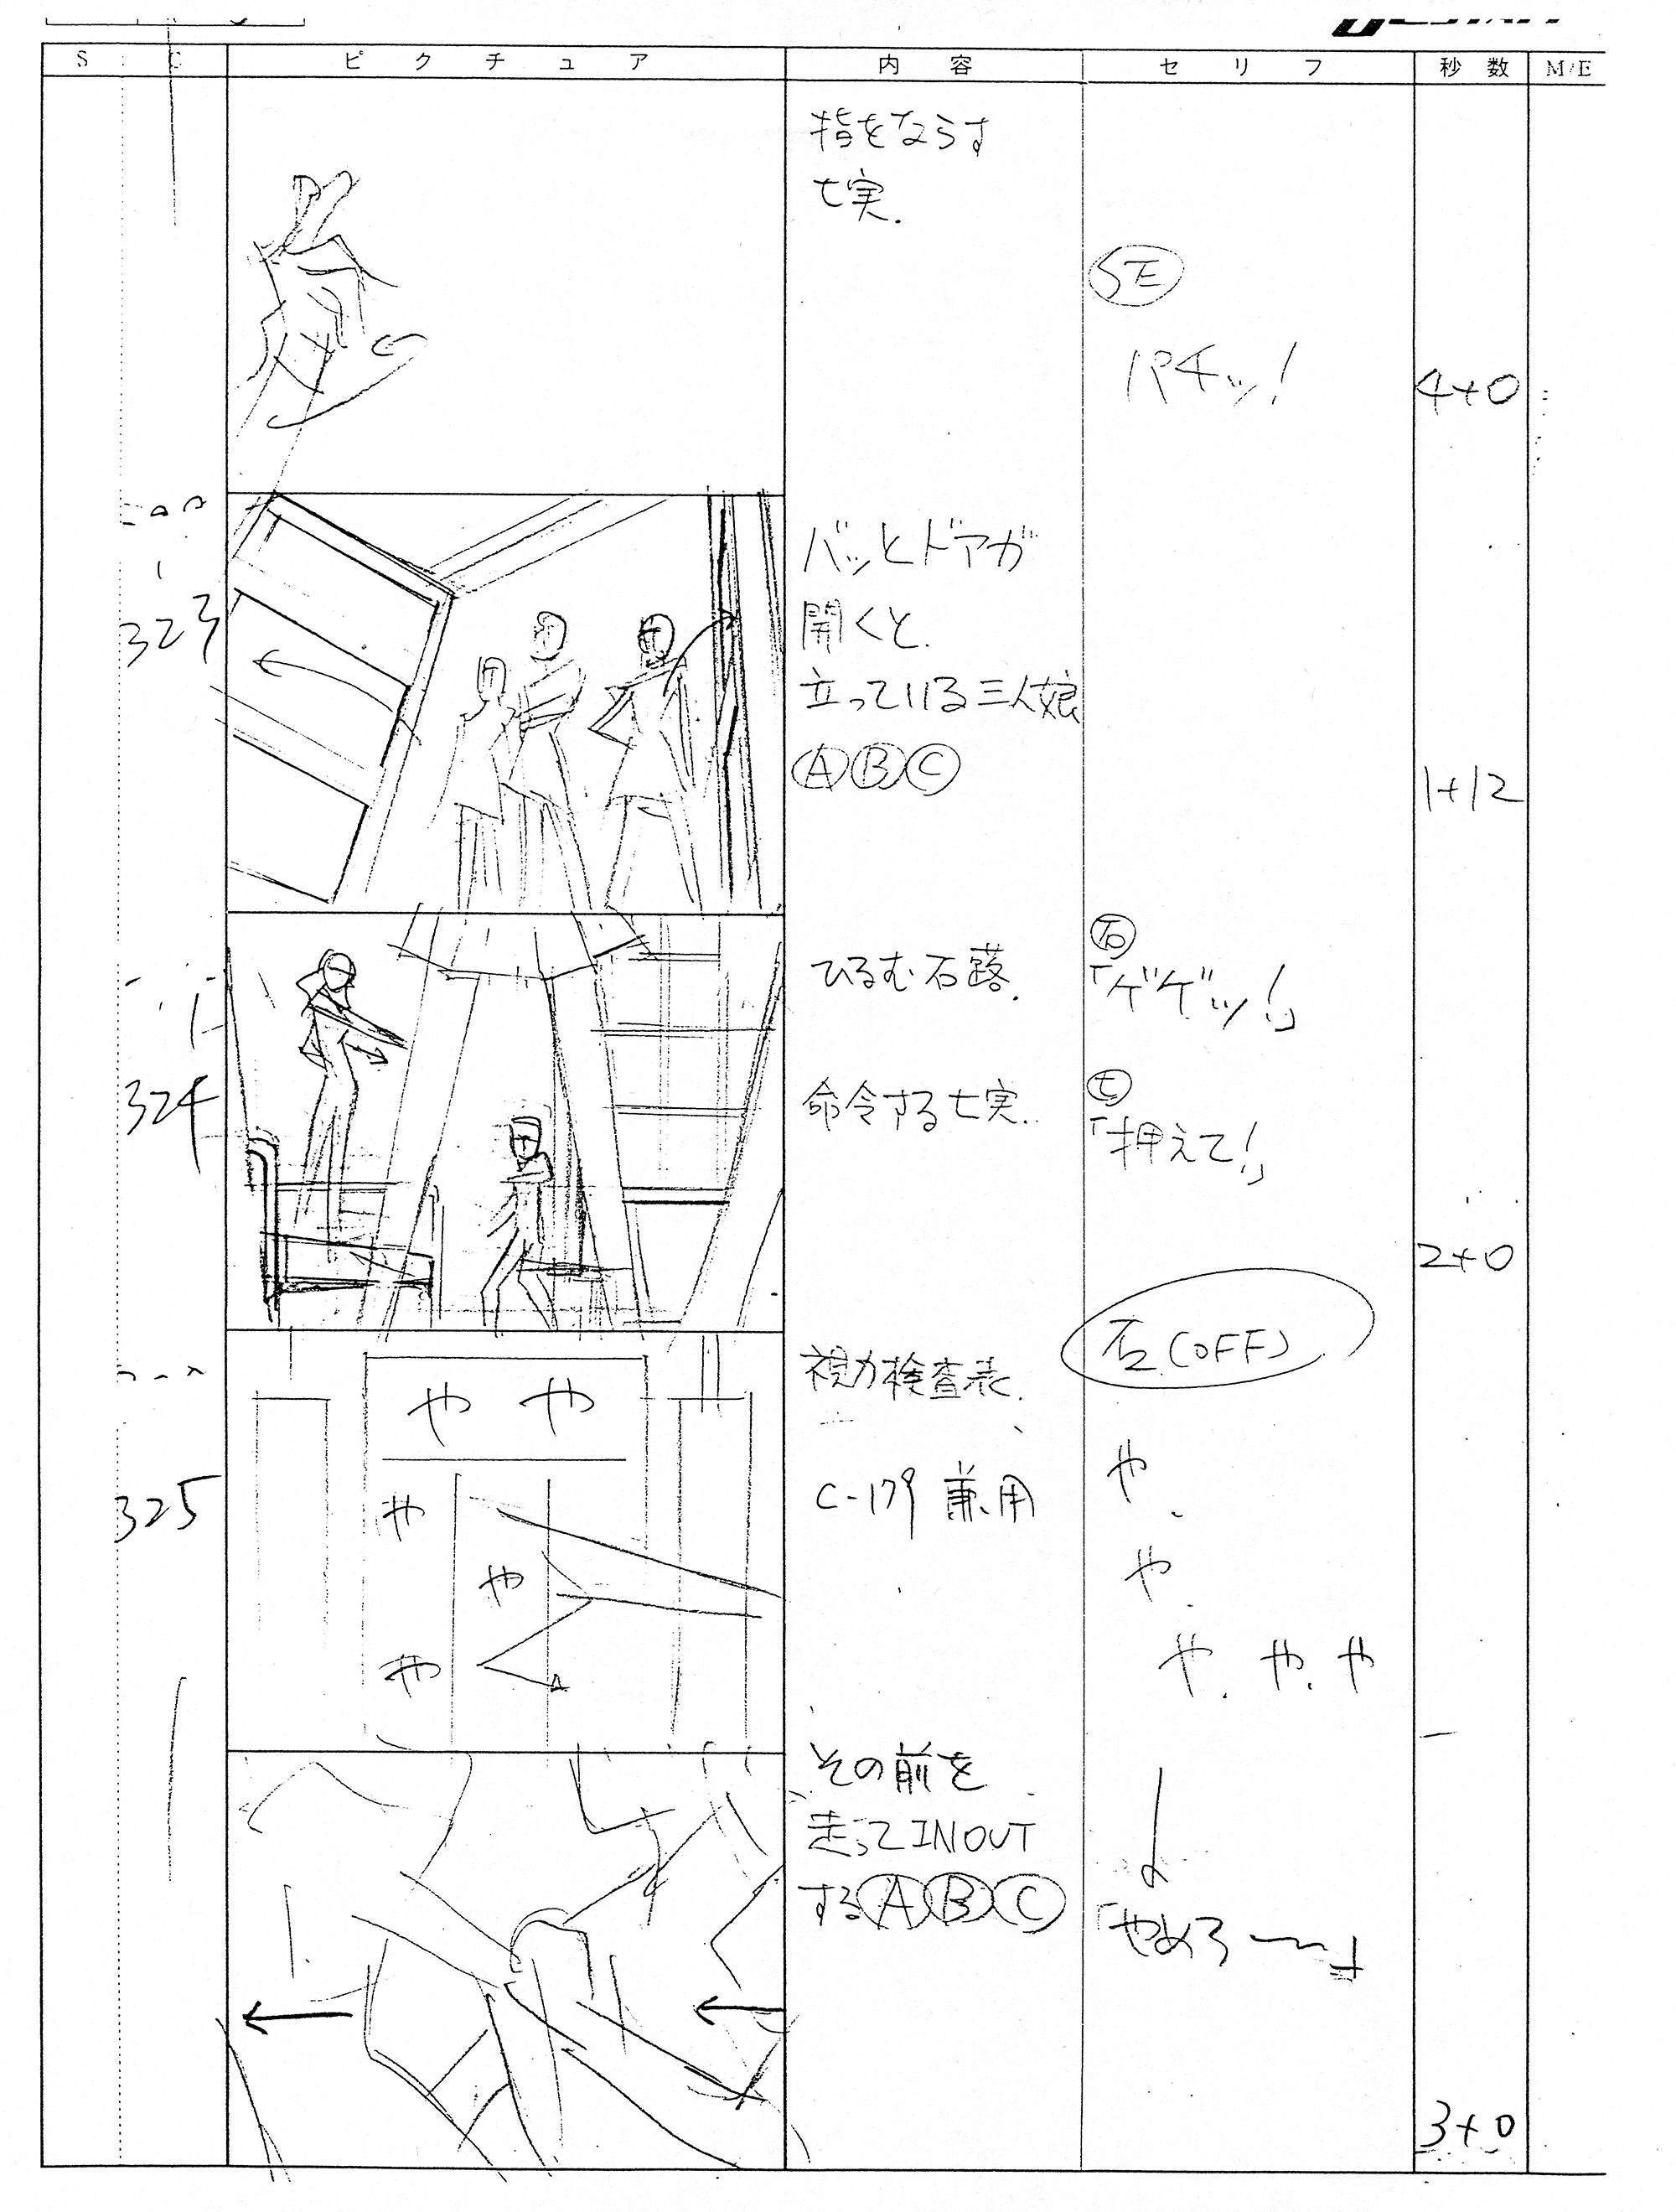 S C ピクチュア 内容 セリフ 秒数 M/E
指をならす
七実.
SE
パチッ!
4+0
323
バッとドアが
開くと.
立っている三人娘
Ⓐ Ⓑ Ⓒ
1+12
324
ひるむ石蕗.
石
「ゲゲッ!」
命令する七実.
七
「押えて!」
2+0
325
や や
や
や
や
視力検査表.
C-179 兼用
石(OFF)
や.
や.
や. や. や
その前を
走ってINOUT
するⒶⒷⒸ
「やめろ〜」
3+0